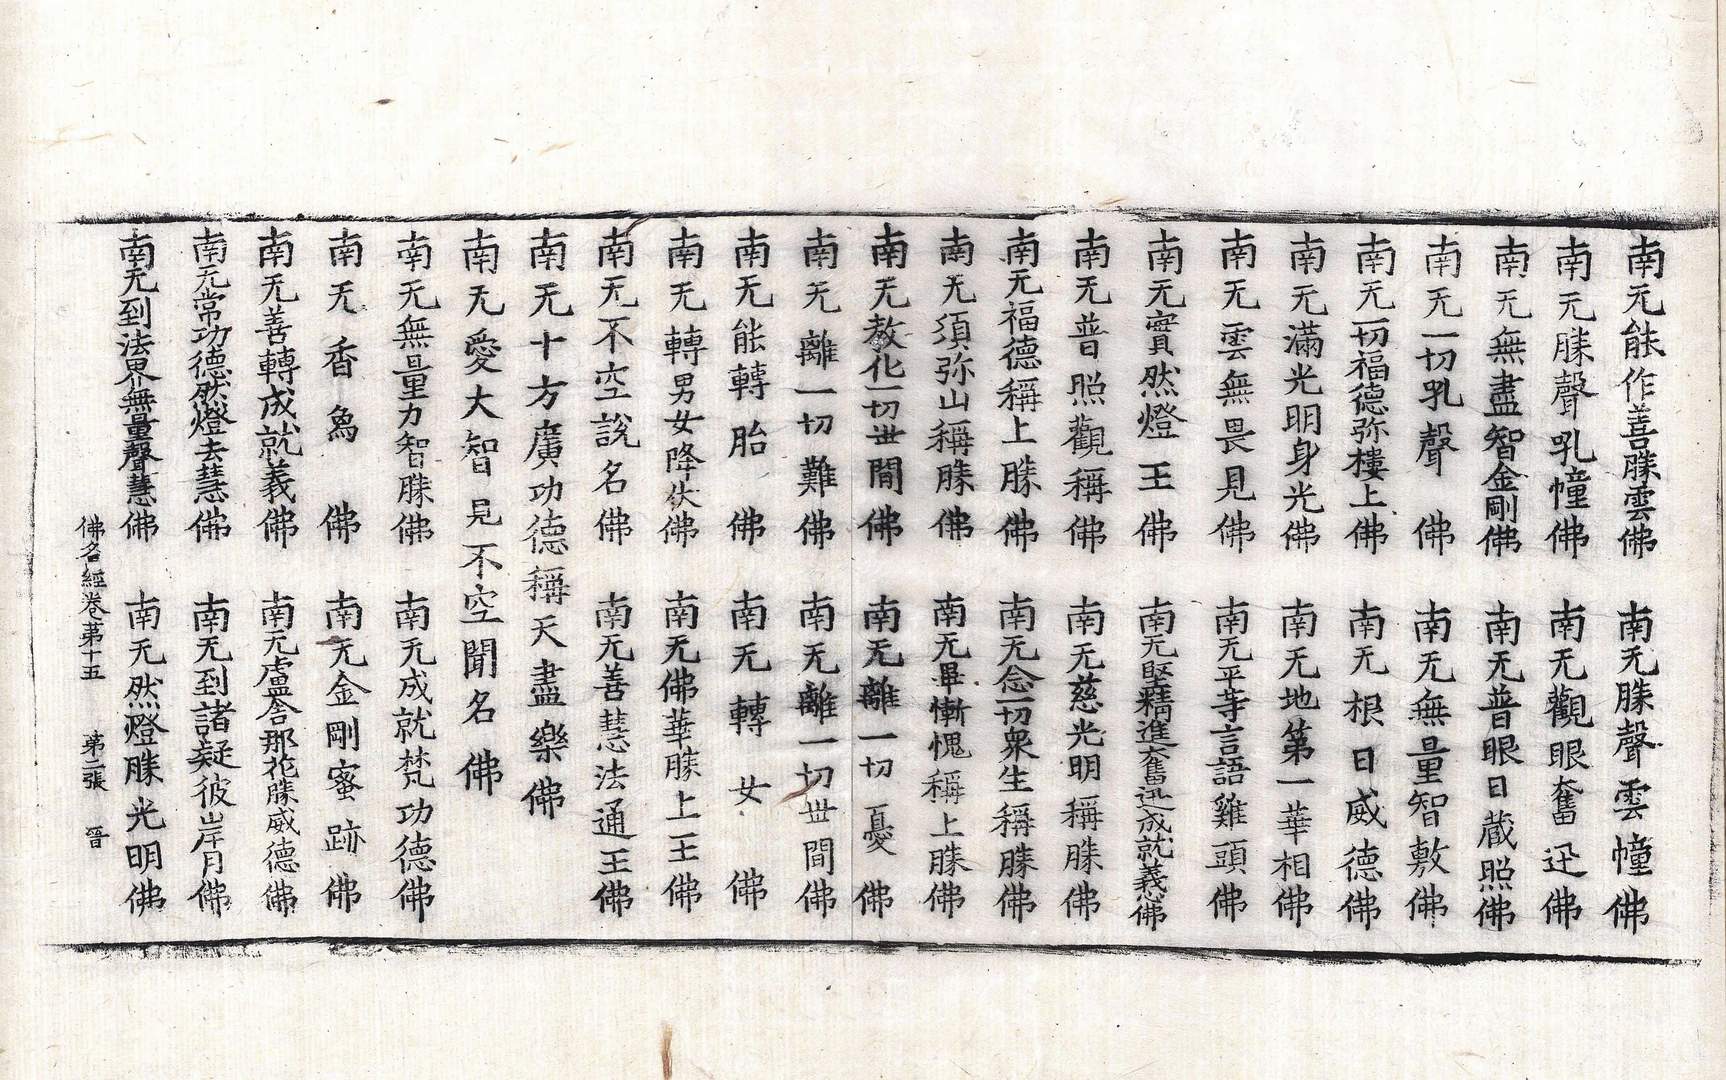 南无能作善勝雲佛　南无勝聲雲幢佛
南无勝聲吼幢佛　南无觀眼奮迅佛
南无無盡智金剛佛　南无普眼日藏照佛
南无一切吼聲佛　南无無量智敷佛
南无一切福德弥樓上佛　南无根日威德佛
南无滿光明身光佛　南无地第一華相佛
南无雲無畏見佛　南无平等言語雞頭佛
南无實然燈王佛　南无堅精進奮迅成就義心佛
南无普照觀稱佛　南无慈光明稱勝佛
南无福德稱上勝佛　南无念一切衆生稱勝佛
南无須弥山稱勝佛　南无畢慚愧稱上勝佛
南无教化一切世間佛　南无離一切憂佛
南无離一切難佛　南无離一切世間佛
南无能轉胎佛　南无轉女佛
南无轉男女降伏佛　南无佛華勝上王佛
南无不空說名佛　南无善慧法通王佛
南无十方廣功德稱天盡樂佛
南无愛大智見不空聞名佛
南无無量力智勝佛　南无成就梵功德佛
南无香爲佛　南无金剛蜜跡佛
南无善轉成就義佛　南无盧舍那花勝威德佛
南无常功德然燈去慧佛　南无到諸疑彼岸月佛
南无到法界無量聲慧佛　南无然燈勝光明佛
佛名經卷苐十五　苐二張　晉